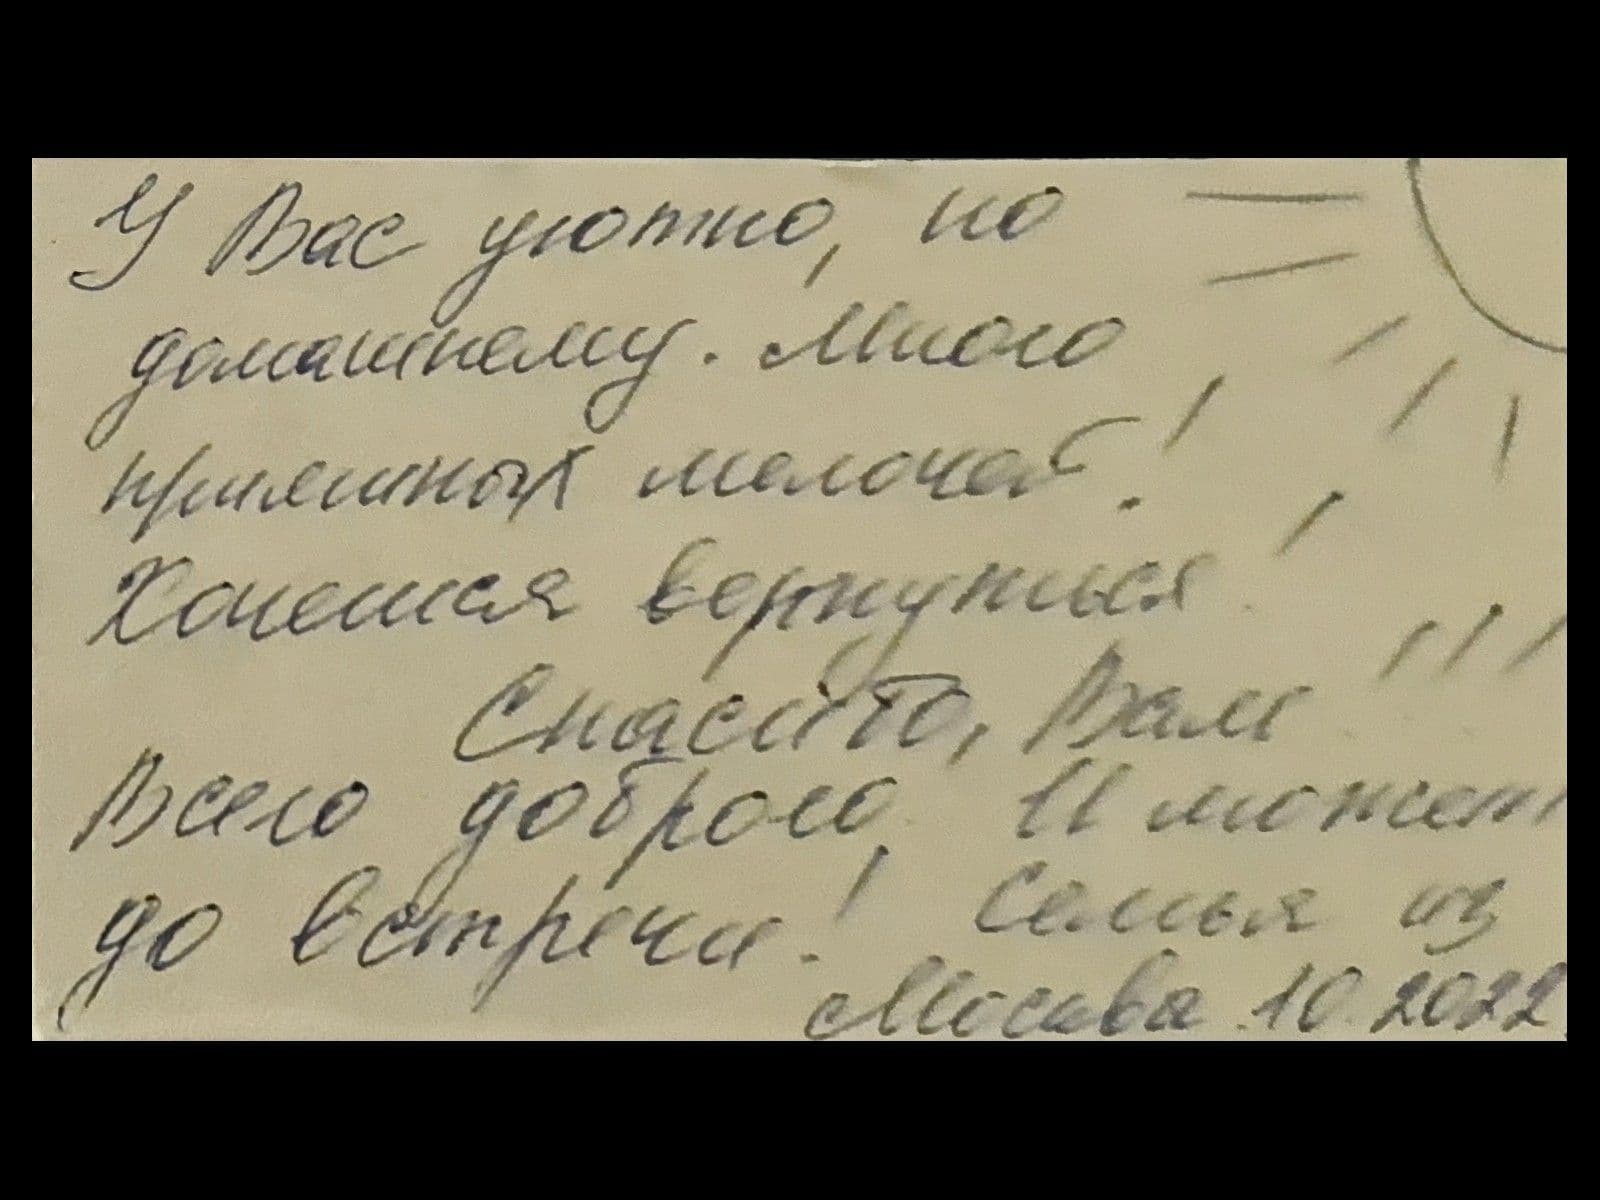 У Вас уютно, по
домашнему. Много
приятных мелочей!
Хочется вернуться!
Спасибо, Вам!!!
Всего доброго, И может
до встречи! Семья из
Москва 10.2022